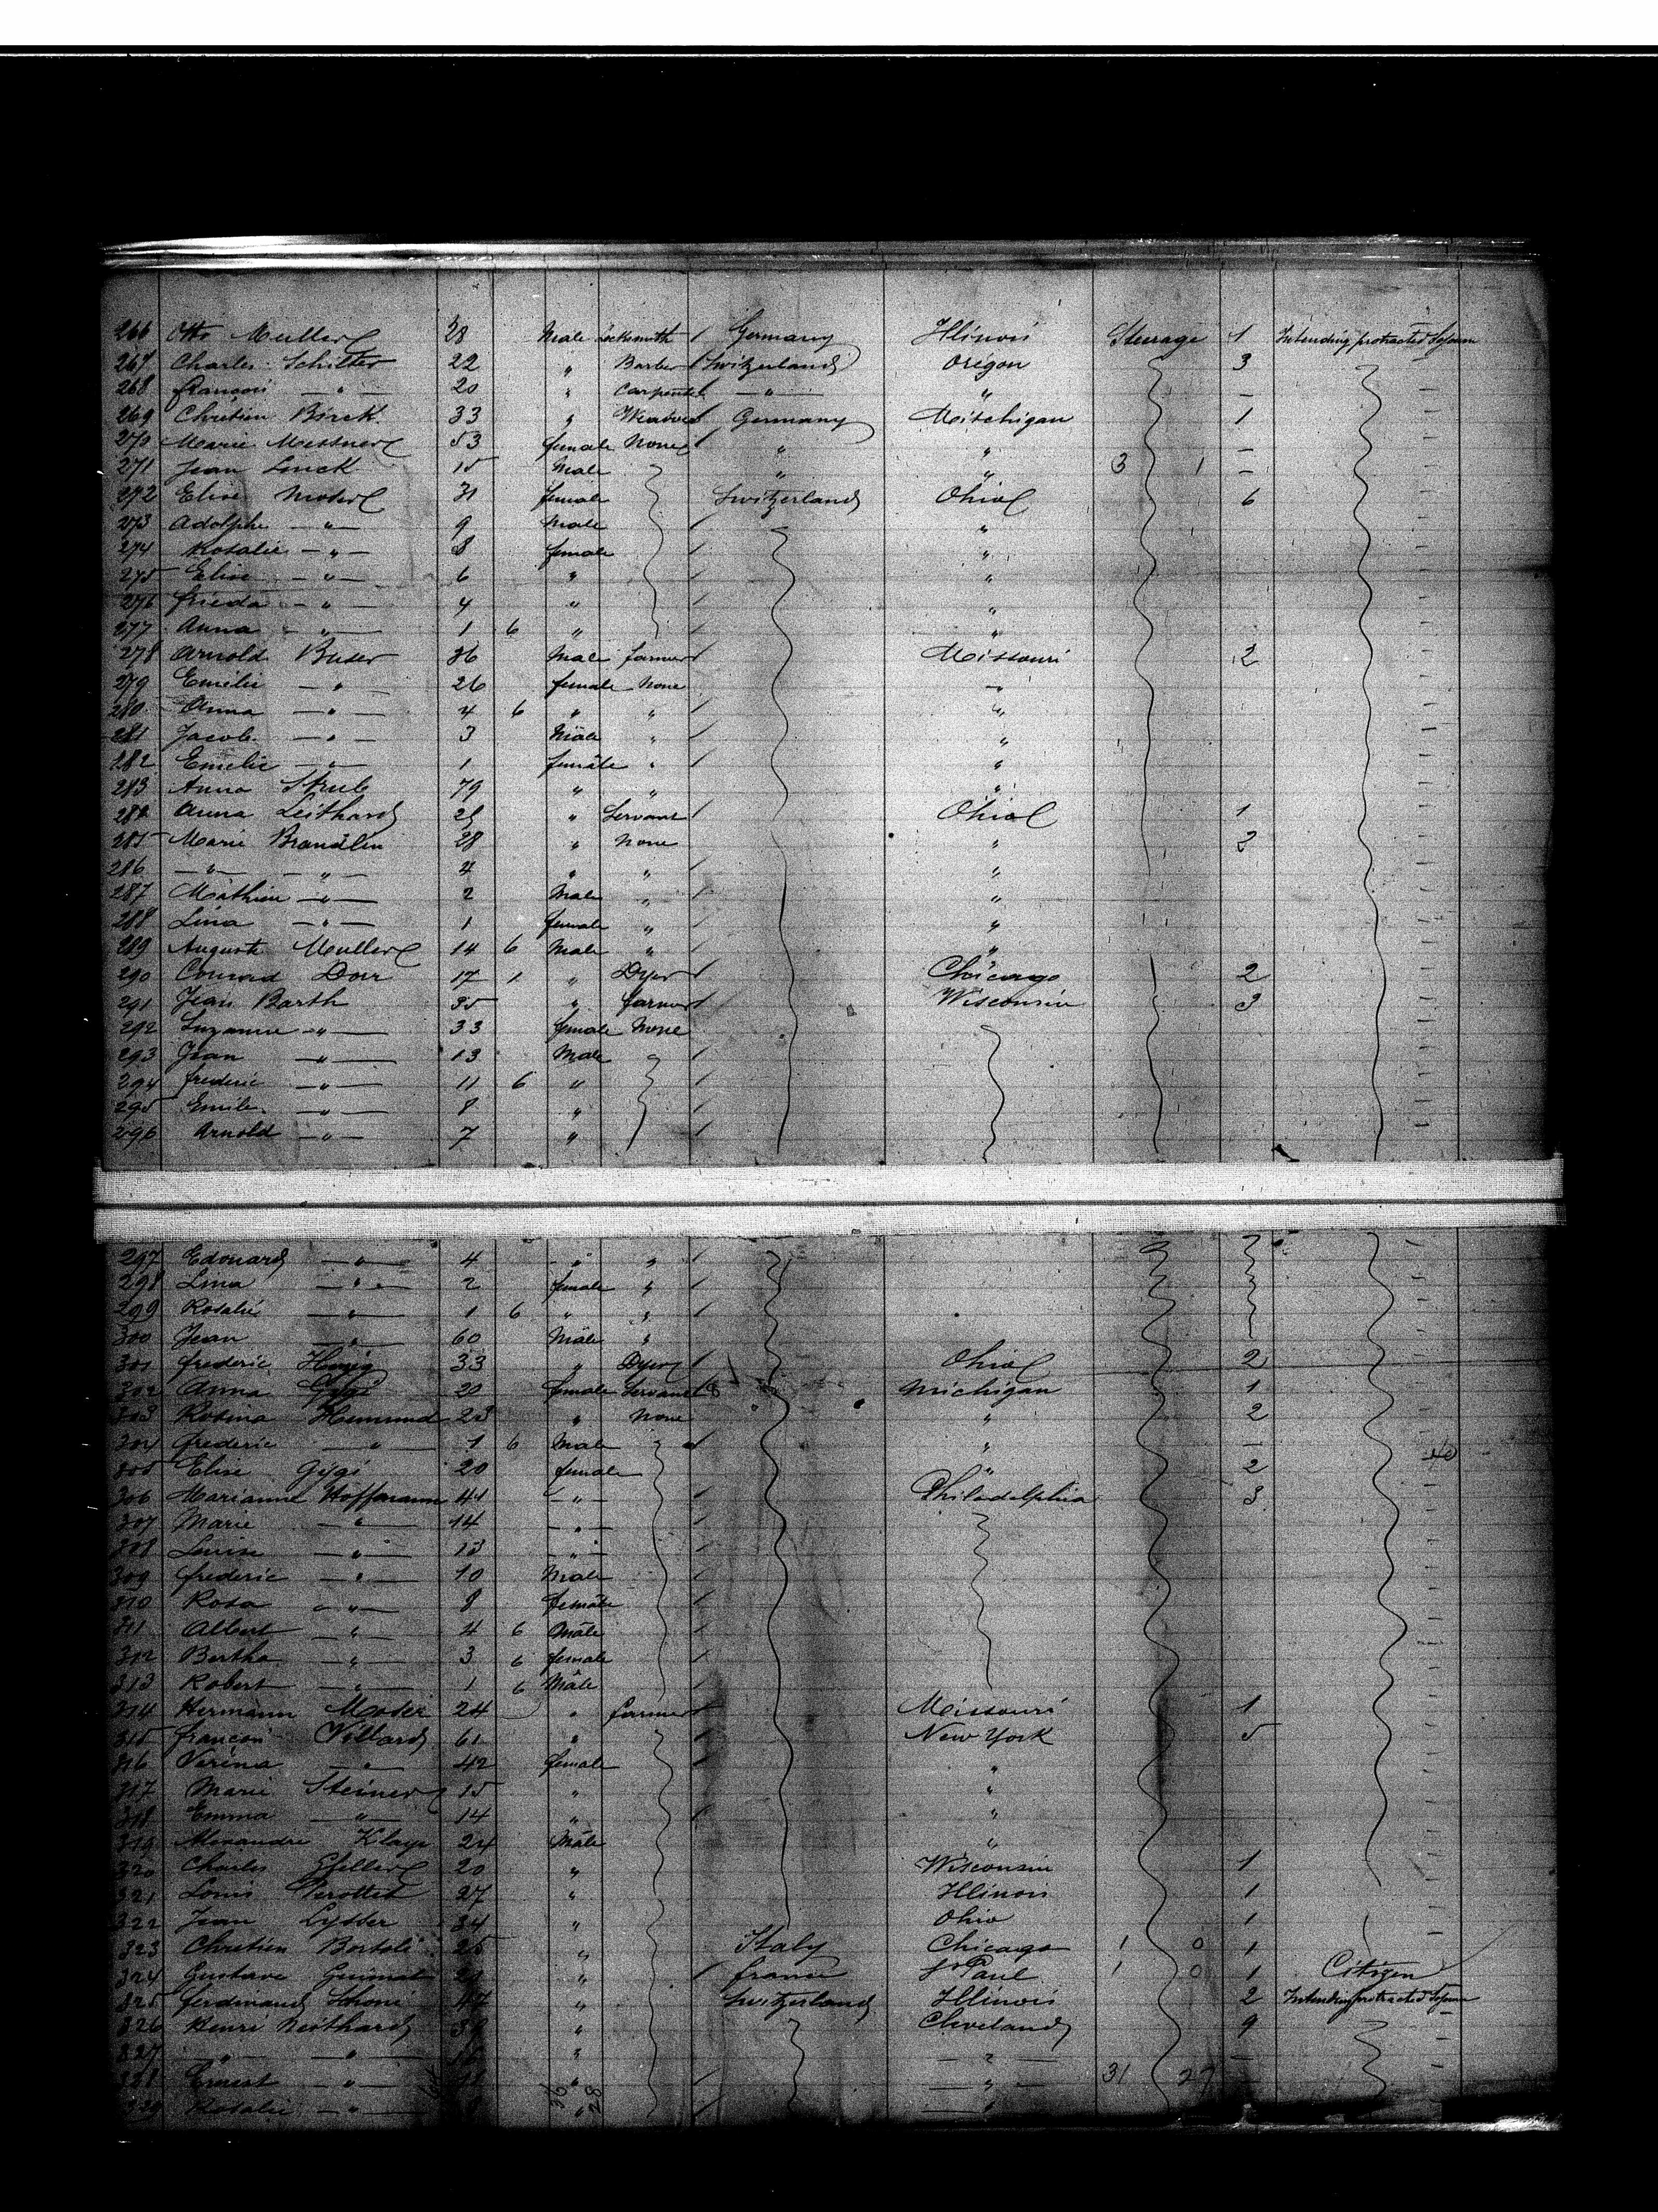 266 Otto Muller 28 Male Locksmith / Germany Illinois Steerage 1 Intending protracted Sejourn
267 Charles Schilter 22 " Barber / Switzerland Oregon 3
268 françois — " — 20 " Carpenter — " — " —
269 Chretien Birck 33 " Weaver Germany Mitchigan 1
270 Marie Messner 53 female None " " —
271 Jean Linck 15 Male " " 3 1 —
272 Elise Moser 31 female Switzerland Ohio 6
273 Adolphe — " — 9 Male "
274 Rosalie — " — 8 female "
275 Elise — " — 6 " "
276 frieda — " — 4 " "
277 Anna — " — 1 6 " "
278 Arnold Buser 36 Male farmer Missouri 2
279 Emilie — " — 26 female None "
280 Anna — " — 4 6 " " "
281 Jacob — " — 3 Male " "
282 Emilie — " — 1 female " "
283 Anna Strub 79 " " "
284 Anna Leithard " Servant Ohio 1
285 Marie Brandlin 28 " None " 3
286 — " — — " — 4 " " "
287 Mathieu — " — 2 Male " "
288 Lina — " — 1 female " "
289 Auguste Muller 14 6 Male " "
290 Conrad Dorr 17 1 " Dyer Chicago 2
291 Jean Barth 35 " farmer Wisconsin 3
292 Suzanne — " — 33 female None
293 Jean — " — 13 Male
294 frederic — " — 11 6 "
295 Emile — " — 8 "
296 Arnold — " — 7 "
297 Edouard — " — 4 " "
298 Lina — " — 2 female "
299 Rosalie — " — 1 6 " "
300 Jean — " — 60 Male "
301 frederic 33 " Dyer Ohio 2
302 Anna Gygi 20 female Servant Michigan 1
303 Rosina 23 " None " 2
304 frederic — " — 1 6 Male " —
305 Elise Gygi 20 female " 2
306 Marianne Hoffmann 41 — " — Philadelphia 3
307 Marie — " — 14 — " —
308 Louise — " — 13 — " —
309 frederic — " — 10 Male
310 Rosa — " — 8 female
311 Albert — " — 4 6 Male
312 Bertha — " — 3 6 female
313 Robert — " — 1 6 Male
314 Hermann Moser 24 " farmer Missouri 1
315 francois Villard 61 " New York 5
316 Verena — " — 42 female "
317 Marie Steiner 15 " "
318 Emma — " — 14 " "
319 Alexandre Klaye 24 Male "
320 Charles Gfeller 20 " Wisconsin 1
321 Louis Perottet 27 " Illinois 1
322 Jean Lysser 34 " Ohio 1
323 Chretien Bortoli 25 " Italy Chicago 1 0 1
324 Gustave " france St Paul 1 0 1 Citizen
325 ferdinand 47 " Switzerland Illinois 2 Intending protracted Sejourn
326 Henri " Cleveland 9
327 — " — — " — " — " — —
328 Ernest — " — " — " — 31 27 —
329 Rosalie — " — " — " —
36 28